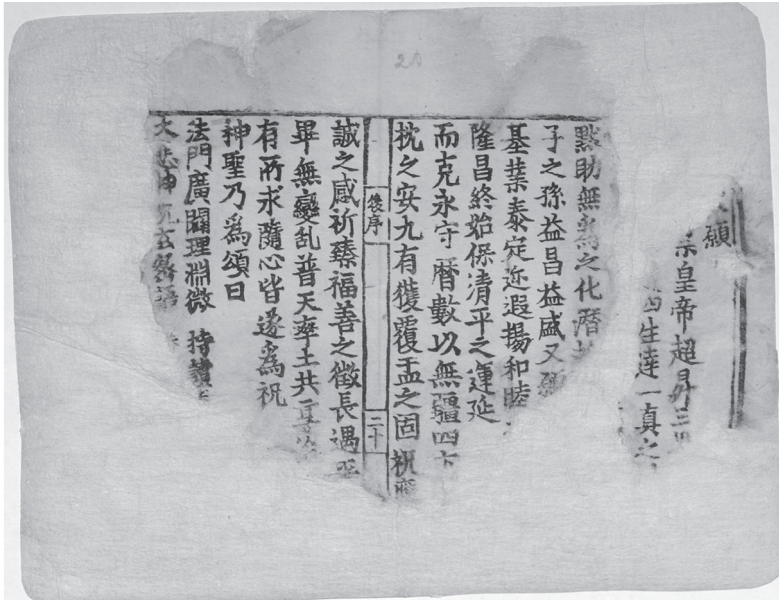 願
宗皇帝超昇三
四生達一真之
默助無爲之化潛
子之孫益昌益盛又
基業泰定迩遐揚和睦
隆昌終始保清平之運延
而克永守 曆數以無疆四方
枕之安九有獲覆盂之固祝
後序 二十
誠之感祈臻福善之徵長遇平
畢無變乱普天率土共享
有所求隨心皆遂爲祝
神聖乃爲頌曰
法門廣闢理淵微 持讀
大悲神咒玄密語
20